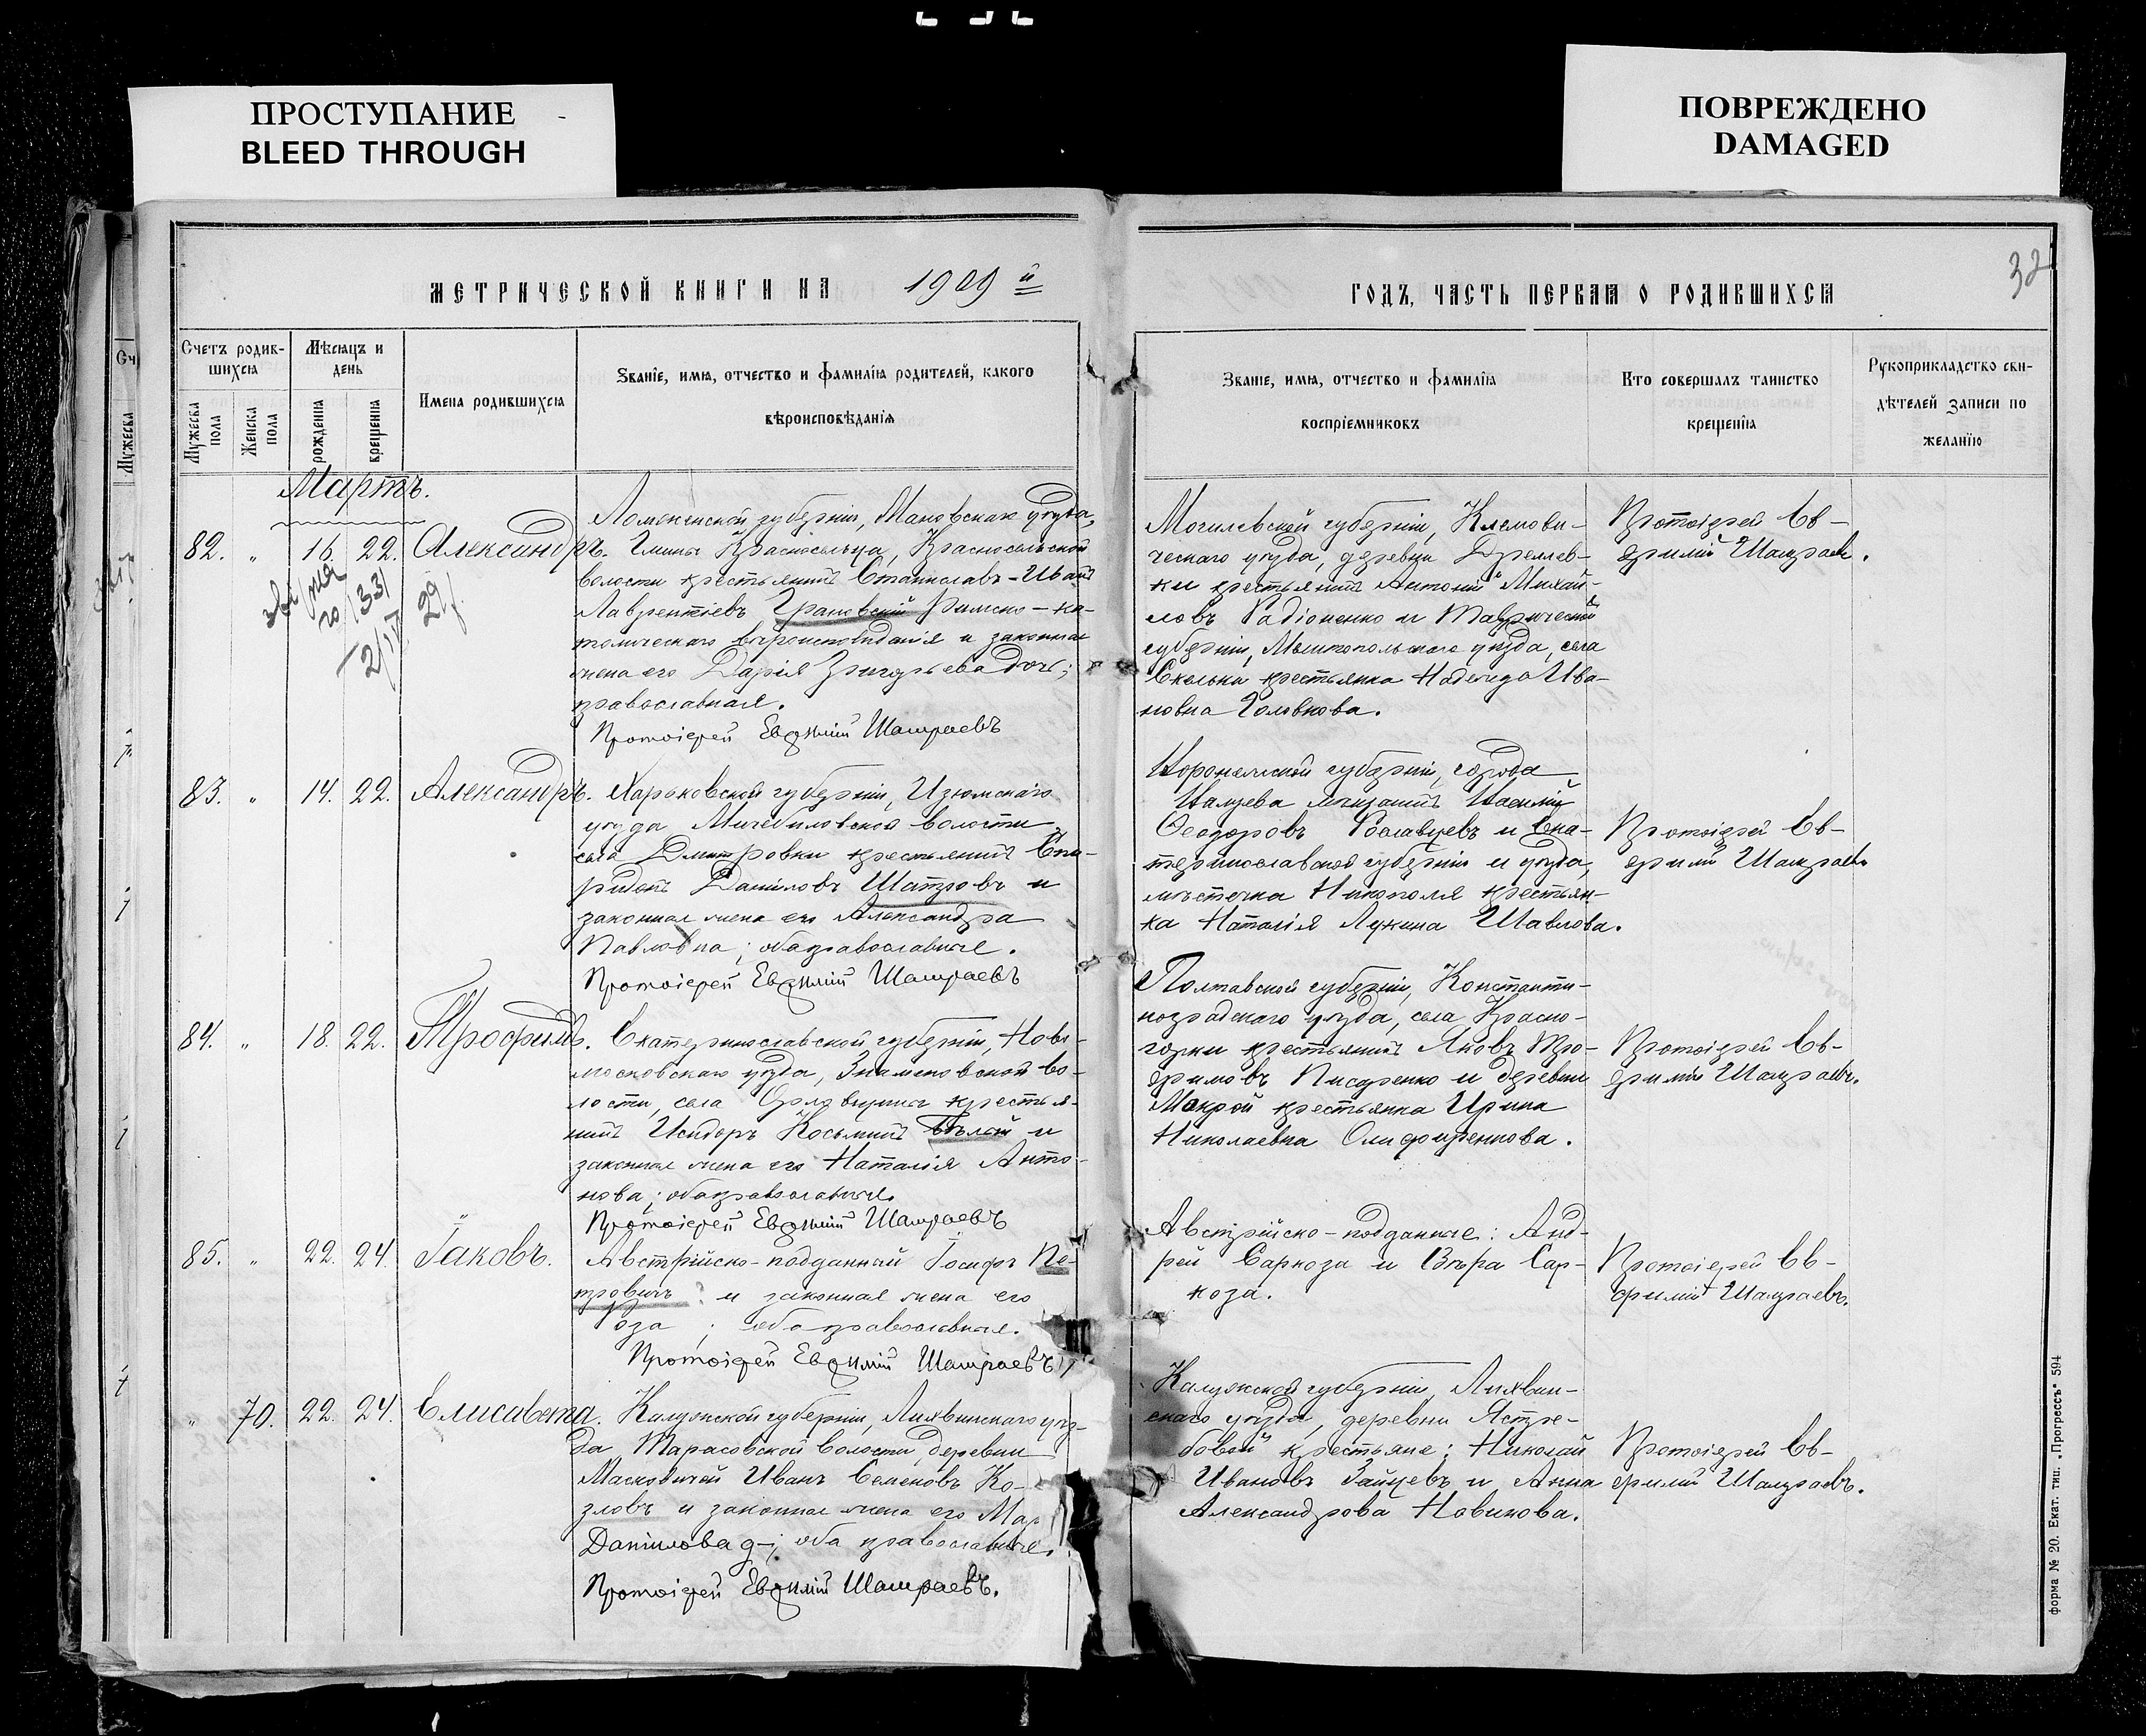 ПРОСТУПАНИЕ
BLEED THROUGH
ПОВРЕЖДЕНО
DAMAGED
32
МЕТРИЧЕСКОЙ КНИГИ НА 1909 й
ГОДЪ, ЧАСТЬ ПЕРВАЯ О РОДИВШИХСЯ
Сч
Мужеска
Счетъ родив-
шихся
Мужеска пола
Женска пола
Мѣсяцъ и
день
рожденія
крещенія
Имена родившихся
Званіе, имя, отчество и фамилія родителей, какого
вѣроисповѣданія
Званіе, имя, отчество и фамилія
воспріемниковъ
Кто совершалъ таинство
крещенія
Рукоприкладство сви-
дѣтелей записи по
желанію
Мартъ.
82. „ 16. 22. Александръ.
Ломжинской губерніи, Маковскаго уѣзда,
Гмины Красносельца, Красносельской
волости крестьянинъ Станиславъ-Иванъ
Лаврентіевъ Римско-ка-
толическаго вѣроисповѣданія и законная
жена его Дарія Григорьева дочь;
православная.
Протоіерей Евфимій Шамраевъ
Могилевской губерніи, Климови-
ческаго уѣзда, деревни
крестьянинъ Антоній Михай-
ловъ Радіоненко и Таврической
губерніи, Мелитопольскаго уѣзда, села
Скельки крестьянка Надежда Ива-
новна Головкова.
Протоіерей Ев-
фимій Шамраевъ.
83. „ 14. 22. Александръ.
Харьковской губерніи, Изюмскаго
уѣзда волости
села Дмитровки крестьянинъ Спи-
ридонъ Даниловъ Шатровъ и
законная жена его Александра
Павловна; оба православные.
Протоіерей Евфимій Шамраевъ
Воронежской губерніи, города
мѣщанинъ Василій
Феодоровъ и Ека-
теринославской губерніи и уѣзда,
мѣстечка Никополя крестьян-
ка Наталія Лукина Шавлова.
Протоіерей Ев-
фимій Шамраевъ
84. „ 18. 22. Трофимъ.
Екатеринославской губерніи, Ново-
московскаго уѣзда, Знаменовской во-
лости, села крестья-
нинъ Исидоръ Косьминъ Бѣлай и
законная жена его Наталія Анто-
нова; оба православные.
Протоіерей Евфимій Шамраевъ
Полтавской губерніи, Константи-
ноградскаго уѣзда, села Красно-
горки крестьянинъ Яковъ Тро-
фимовъ Писаренко и деревни
Мокрой крестьянка Ирина
Николаевна Олифиренкова.
Протоіерей Ев-
фимій Шамраевъ.
85. „ 22. 24. Іаковъ.
Австрійско-подданный Іосифъ Пе-
тровичъ и законная жена его
Роза; оба православные.
Протоіерей Евфимій Шамраевъ
Австрійско-подданные: Анд-
рей Саркоза и Вѣра Сар-
коза.
Протоіерей Ев-
фимій Шамраевъ.
„ 70. 22. 24. Елисавета.
Калужской губерніи, Лихвинскаго уѣз-
да Тарасовской волости, деревни
Иванъ Семеновъ Ко-
зловъ и законная жена его Мар
Даніилова д-; оба православные.
Протоіерей Евфимій Шамраевъ.
Калужской губерніи, Лихвин-
скаго уѣзда, деревни Ястре-
бовой крестьяне: Николай
Ивановъ Зайцевъ и Анна
Александрова Новикова.
Протоіерей Ев-
фимій Шамраевъ.
форма № 20. Екат. тип. „Прогрессъ“ 594